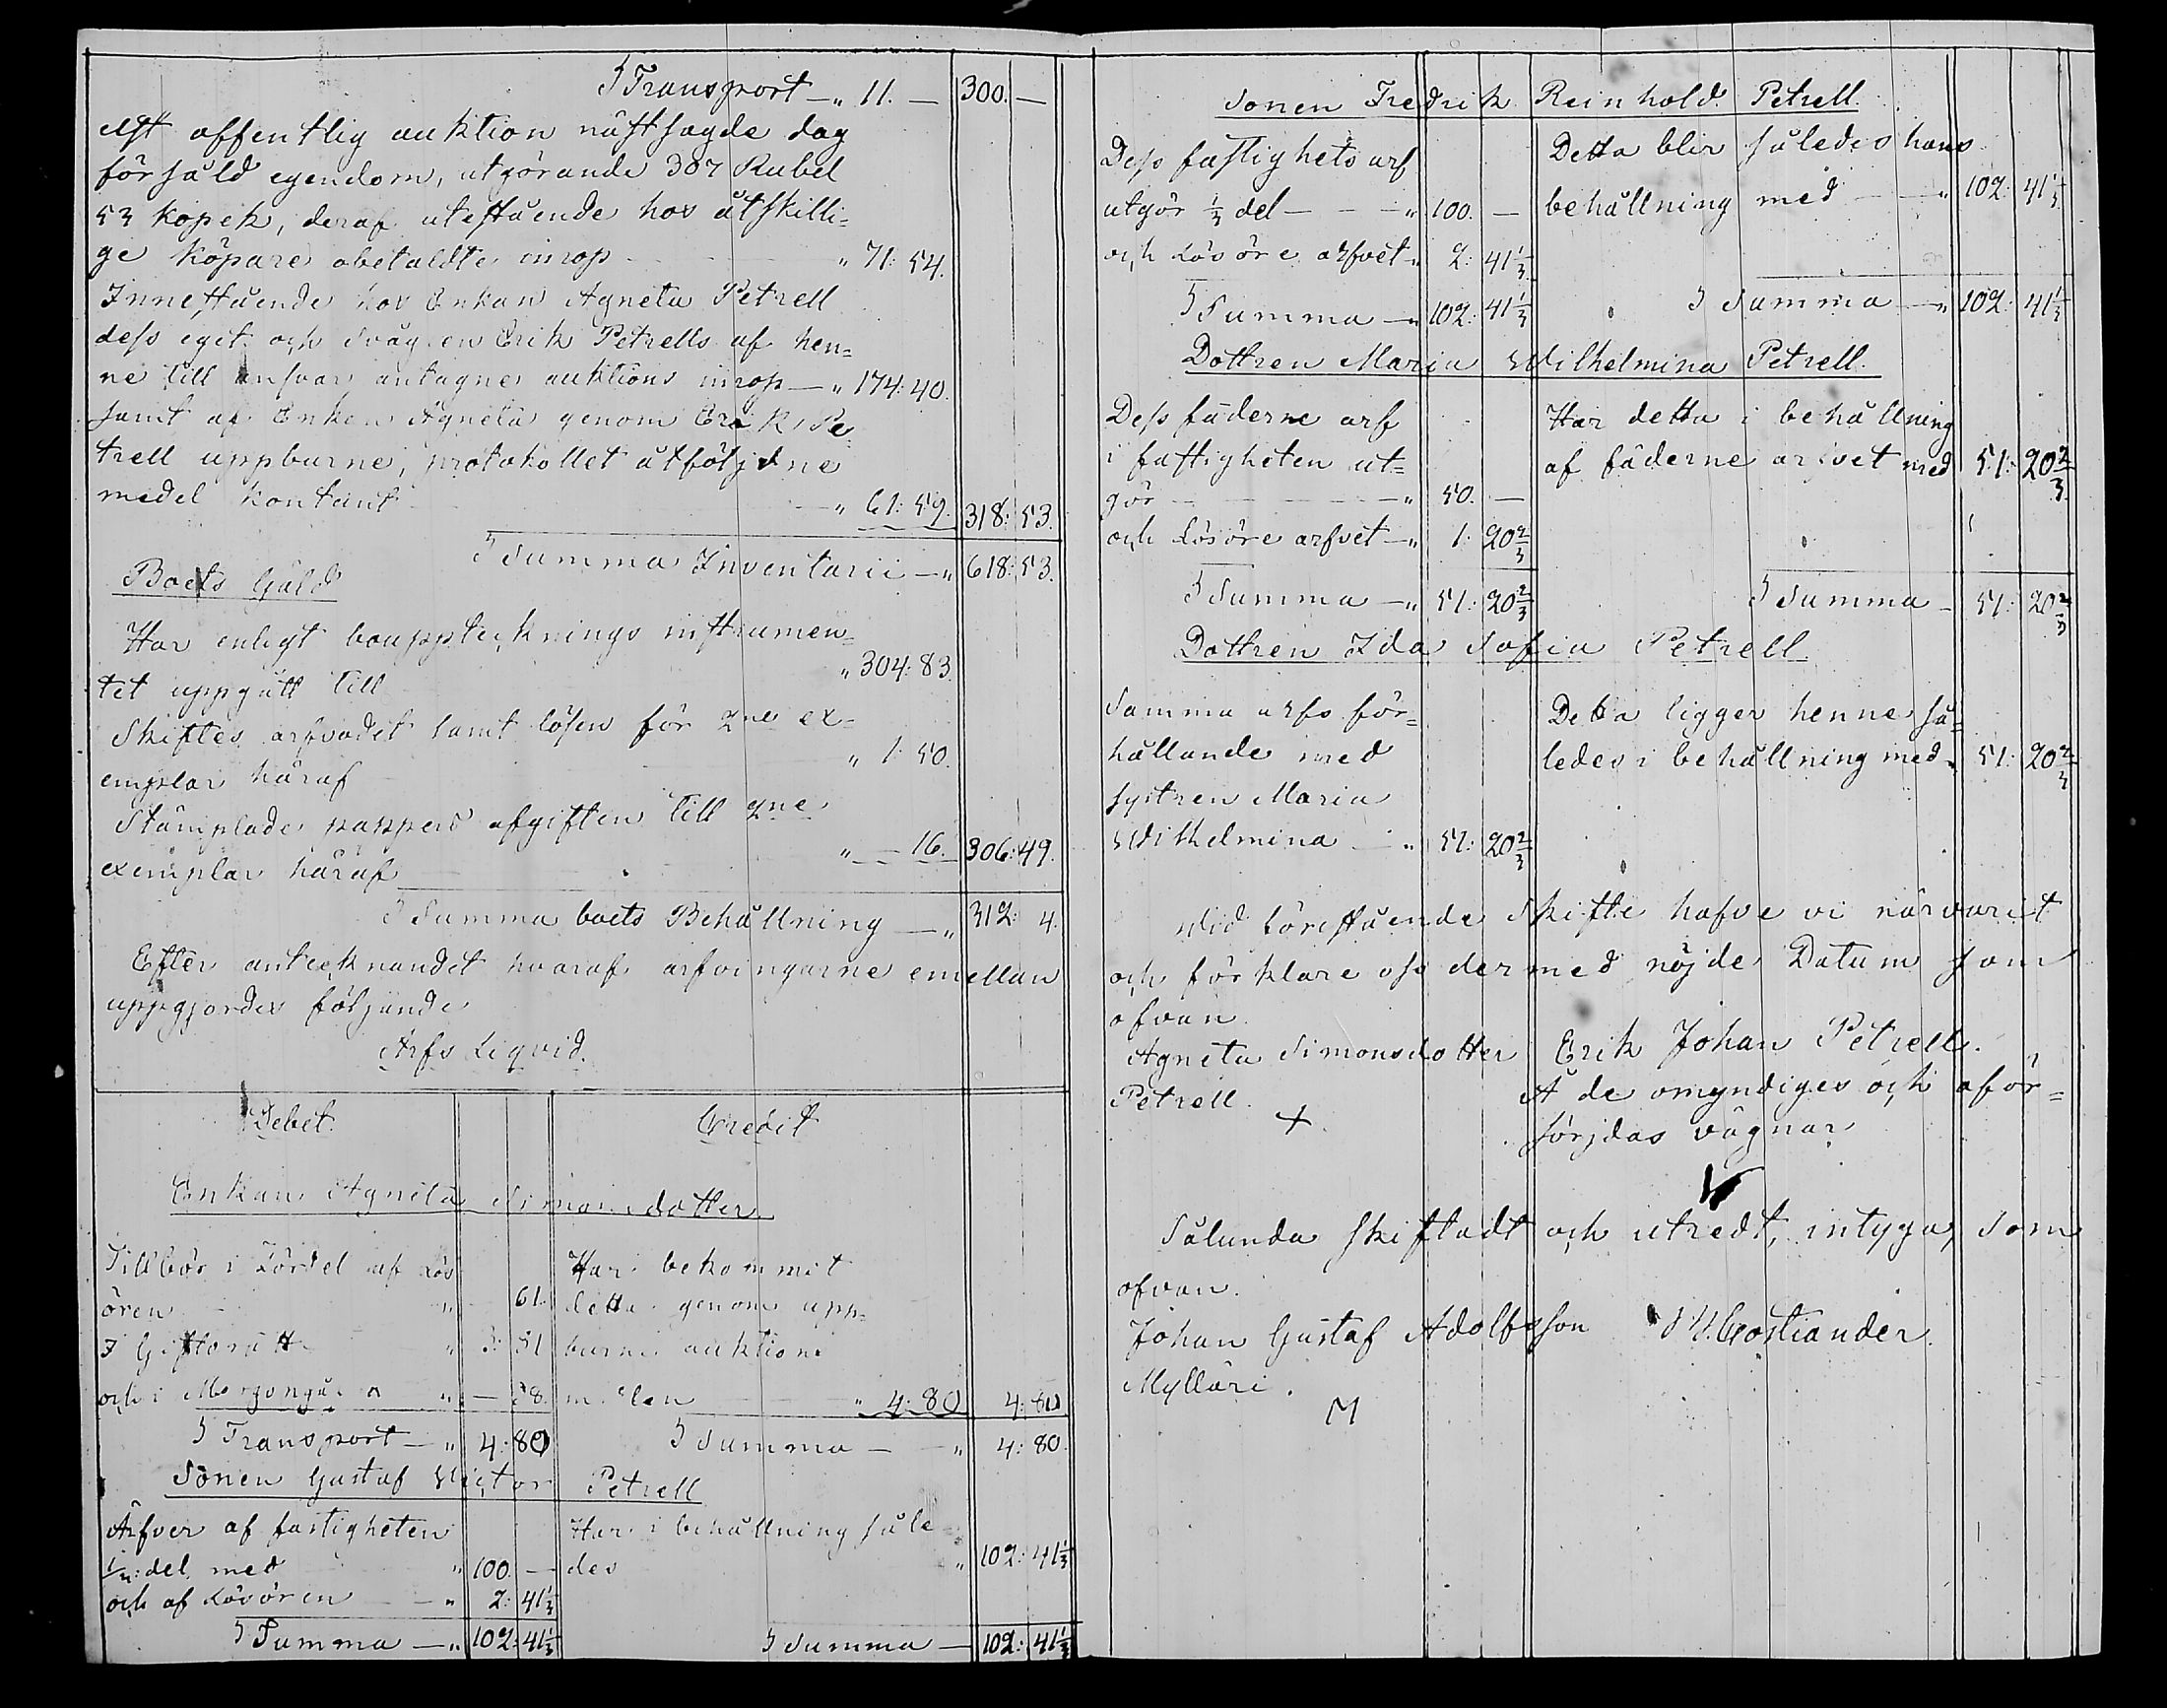 Transport — „ 11. — 300. —
Af offentlig auktion nästsagde dag
försåld egendom, utgörande 387 Rubel
53 kopek, deraf utestående hos åtskilli=
ge köpare obetaldte inrop „ 71: 54.
Innestående hos Enkan Agneta Petrell
dess eget och Svågren Erik Petrells af hen=
ne till ansvar antagne auktions inrop — „ 174: 40.
samt af Enkan Agneta genom Erik Pe
trell uppburne, protokollet åtföljdne
medel kontant „ 61: 59. 318: 53.
Summa Inventarii — „ 618: 53.
Boets Gäld
Har enligt bouppteknings instrumen=
tet uppgått till „ 304: 83.
Skiftes arfvodet samt lösen för 2ne ex=
emplar häraf „ 1: 50.
Stämplade pappers afgiften till 2ne
exemplar häraf „ — 16. 306: 49.
Summa boets Behållning — „ 312: 4.
Efter antecknandet hvaraf arfvingarne emellan
uppgjordes följande
Arfs Liqvid.
Debet. Credit
Enkan Agneta Simonsdotter
Tillkör i Fördel af Lös
ören „ 61.
I Giftorätt „ 3: 31
och i Morgongåva „ — 88.
Transport — „ 4: 80
Har bekommit
detta genom upp=
burne auktions
medlen „ 4: 80 4: 80
Summa — „ 4: 80.
Sonen Gustaf Victor Petrell
Ärfver af fastigheten
1/3 del. med „ 100. —
och af Lösören — „ 2: 41 1/3
Summa — „ 102: 41 1/3
Har i behållning såle
des „ 102: 41 1/3
Summa — 102: 41 1/3
Sonen Fredrik Reinhold Petrell.
Dess fastighets arf
utgör 1/3 del — „ 100. —
och Lösöre arfvet „ 2: 41 1/3
Summa — „ 102: 41 1/3
Detta blir således hans
behållning med — „ 102: 41 1/3
Summa — „ 102: 41 1/3
Dottren Maria Wilhelmina Petrell.
Dess fäderne arf
i fastigheten ut=
gör — „ 50. —
och Lösöre arfvet — „ 1: 20 2/3
Summa — „ 51: 20 2/3
Har detta i behållning
af fäderne arfvet med 51: 20 2/3
Summa — 51: 20 2/3
Dottren Ida Sofia Petrell.
Samma arfs för=
hållande med
systren Maria
Wilhelmina — „ 51: 20 2/3
Detta ligger henne så=
ledes i behållning med „ 51: 20 2/3
Vid förestående Skifte hafve vi närvarit
och förklare oss dermed nöjde Datum som
ofvan.
Agneta Simonsdotter
Petrell.
+
Erik Johan Petrell.
Å de omyndiges och oför=
sörjdas vägnar
Sålunda skiftadt och utredt, intyga, som
ofvan.
Johan Gustaf Adolfsson Costiander.
Mylläri.
M